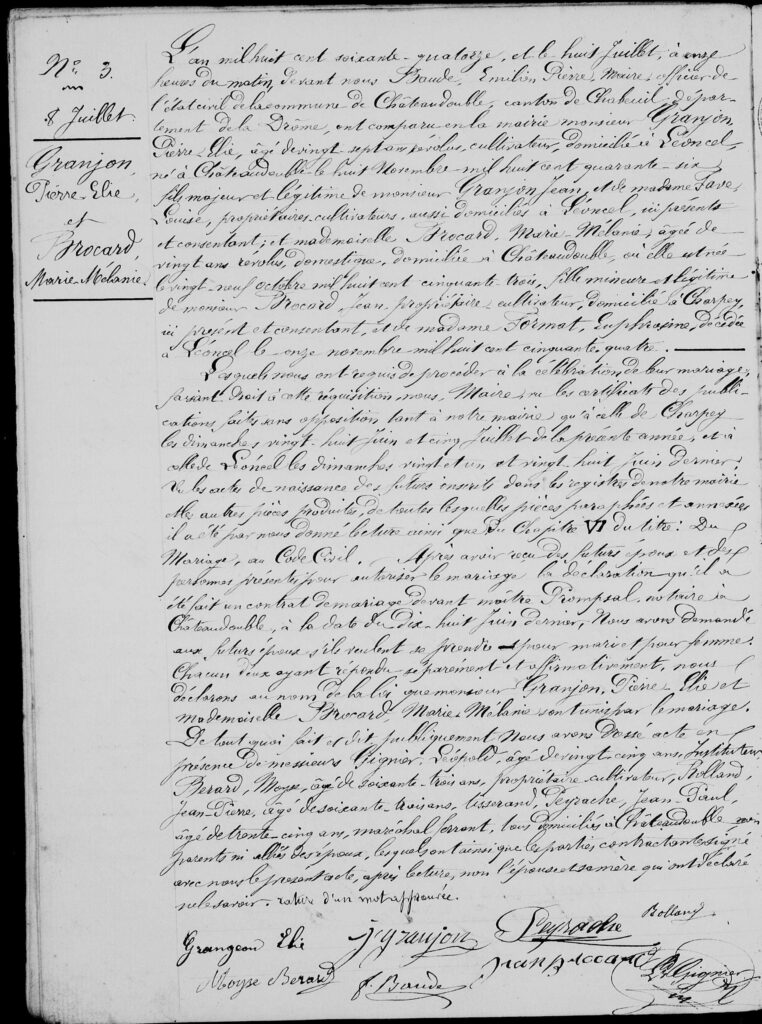 Nº 3.
8 Juillet
Granjon,
Pierre-Elie,
et
Brocard,
Marie-Mélanie.
L'an mil huit cent soixante-quatorze, et le huit Juillet, à onze
heures du matin, devant nous Baude, Emilien Pierre, Maire, officier de
l'état civil de la commune de Châteaudouble, canton de Chabeuil, dépar-
tement de la Drôme, ont comparu en la mairie monsieur Granjon,
Pierre-Elie, âgé de vingt-sept ans révolus, cultivateur, domicilié à Léoncel,
né à Châteaudouble le huit Novembre mil huit cent quarante-six
fils majeur et légitime de monsieur Granjon Jean, et de madame Fave,
Louise, propriétaires cultivateurs, aussi domiciliés à Léoncel, ici présents
et consentant; et mademoiselle Brocard, Marie-Mélanie, âgée de
vingt ans révolus, domestique, domiciliée à Châteaudouble, où elle est née
le vingt-neuf octobre mil huit cent cinquante-trois, fille mineure et légitime
de monsieur Brocard, Jean, propriétaire cultivateur, domicilié à Charpey,
ici présent et consentant, et de madame Format, Euphrosine, décédée
à Léoncel le onze novembre mil huit cent cinquante-quatre.
Lesquels nous ont requis de procéder à la célébration de leur mariage,
faisant droit à cette réquisition, nous, Maire, vu les certificats des publi-
cations faits sans opposition, tant à notre mairie qu'à celle de Charpey
les dimanches vingt-huit Juin et cinq Juillet de la présente année, et à
celle de Léoncel les dimanches vingt et un et vingt-huit Juin dernier
Vu les actes de naissance des futurs inscrits dans les registres de notre mairie
et les autres pièces produites, de toutes lesquelles pièces paraphées et annexées
il a été par nous donné lecture ainsi que du Chapitre VI du titre: Du
Mariage, au Code Civil. Après avoir reçu des futurs époux et des
personnes présentes pour autoriser le mariage la déclaration qu'il a
été fait un contrat de mariage devant maître Prompsal, notaire à
Châteaudouble, à la date du Dix-huit Juin dernier, Nous avons demandé
aux futurs époux s'ils veulent se prendre pour mari et pour femme.
Chacun d'eux ayant répondu séparément et affirmativement, nous
déclarons au nom de la loi que monsieur Granjon, Pierre-Elie et
mademoiselle Brocard, Marie-Mélanie sont unis par le mariage.
De tout quoi fait et dit publiquement Nous avons dressé acte en
présence de messieurs Gignier, Léopold, âgé de vingt-cinq ans, Instituteur,
Berard, Moyse, âgé de soixante-trois ans, propriétaire cultivateur, Rolland,
Jean-Pierre, âgé de soixante-trois ans, tisserand, Peyrache, Jean-Paul,
âgé de trente-cinq ans, maréchal ferrant, tous domiciliés à Châteaudouble non
parents ni alliés des époux, lesquels ont ainsi que les parties contractantes signé
avec nous le présent acte, après lecture, non l'épouse et sa mère qui ont déclaré
ne le savoir. rature d'un mot approuvée.
Grangeon Elie J. Granjon Peyrache Rolland
Moyse Berard E. Baude Ld Gignier